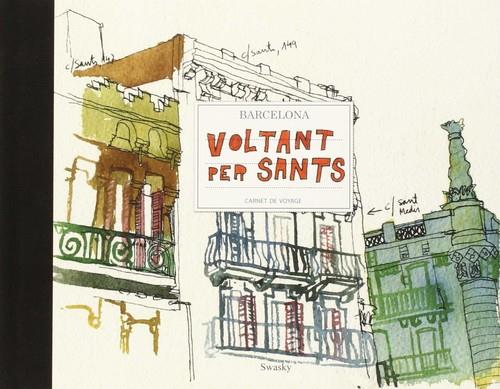 c/ sants, 149
BARCELONA
VOLTANT
PER SANTS
CARNET DE VOYAGE
c/ sant
Medir
Swasky